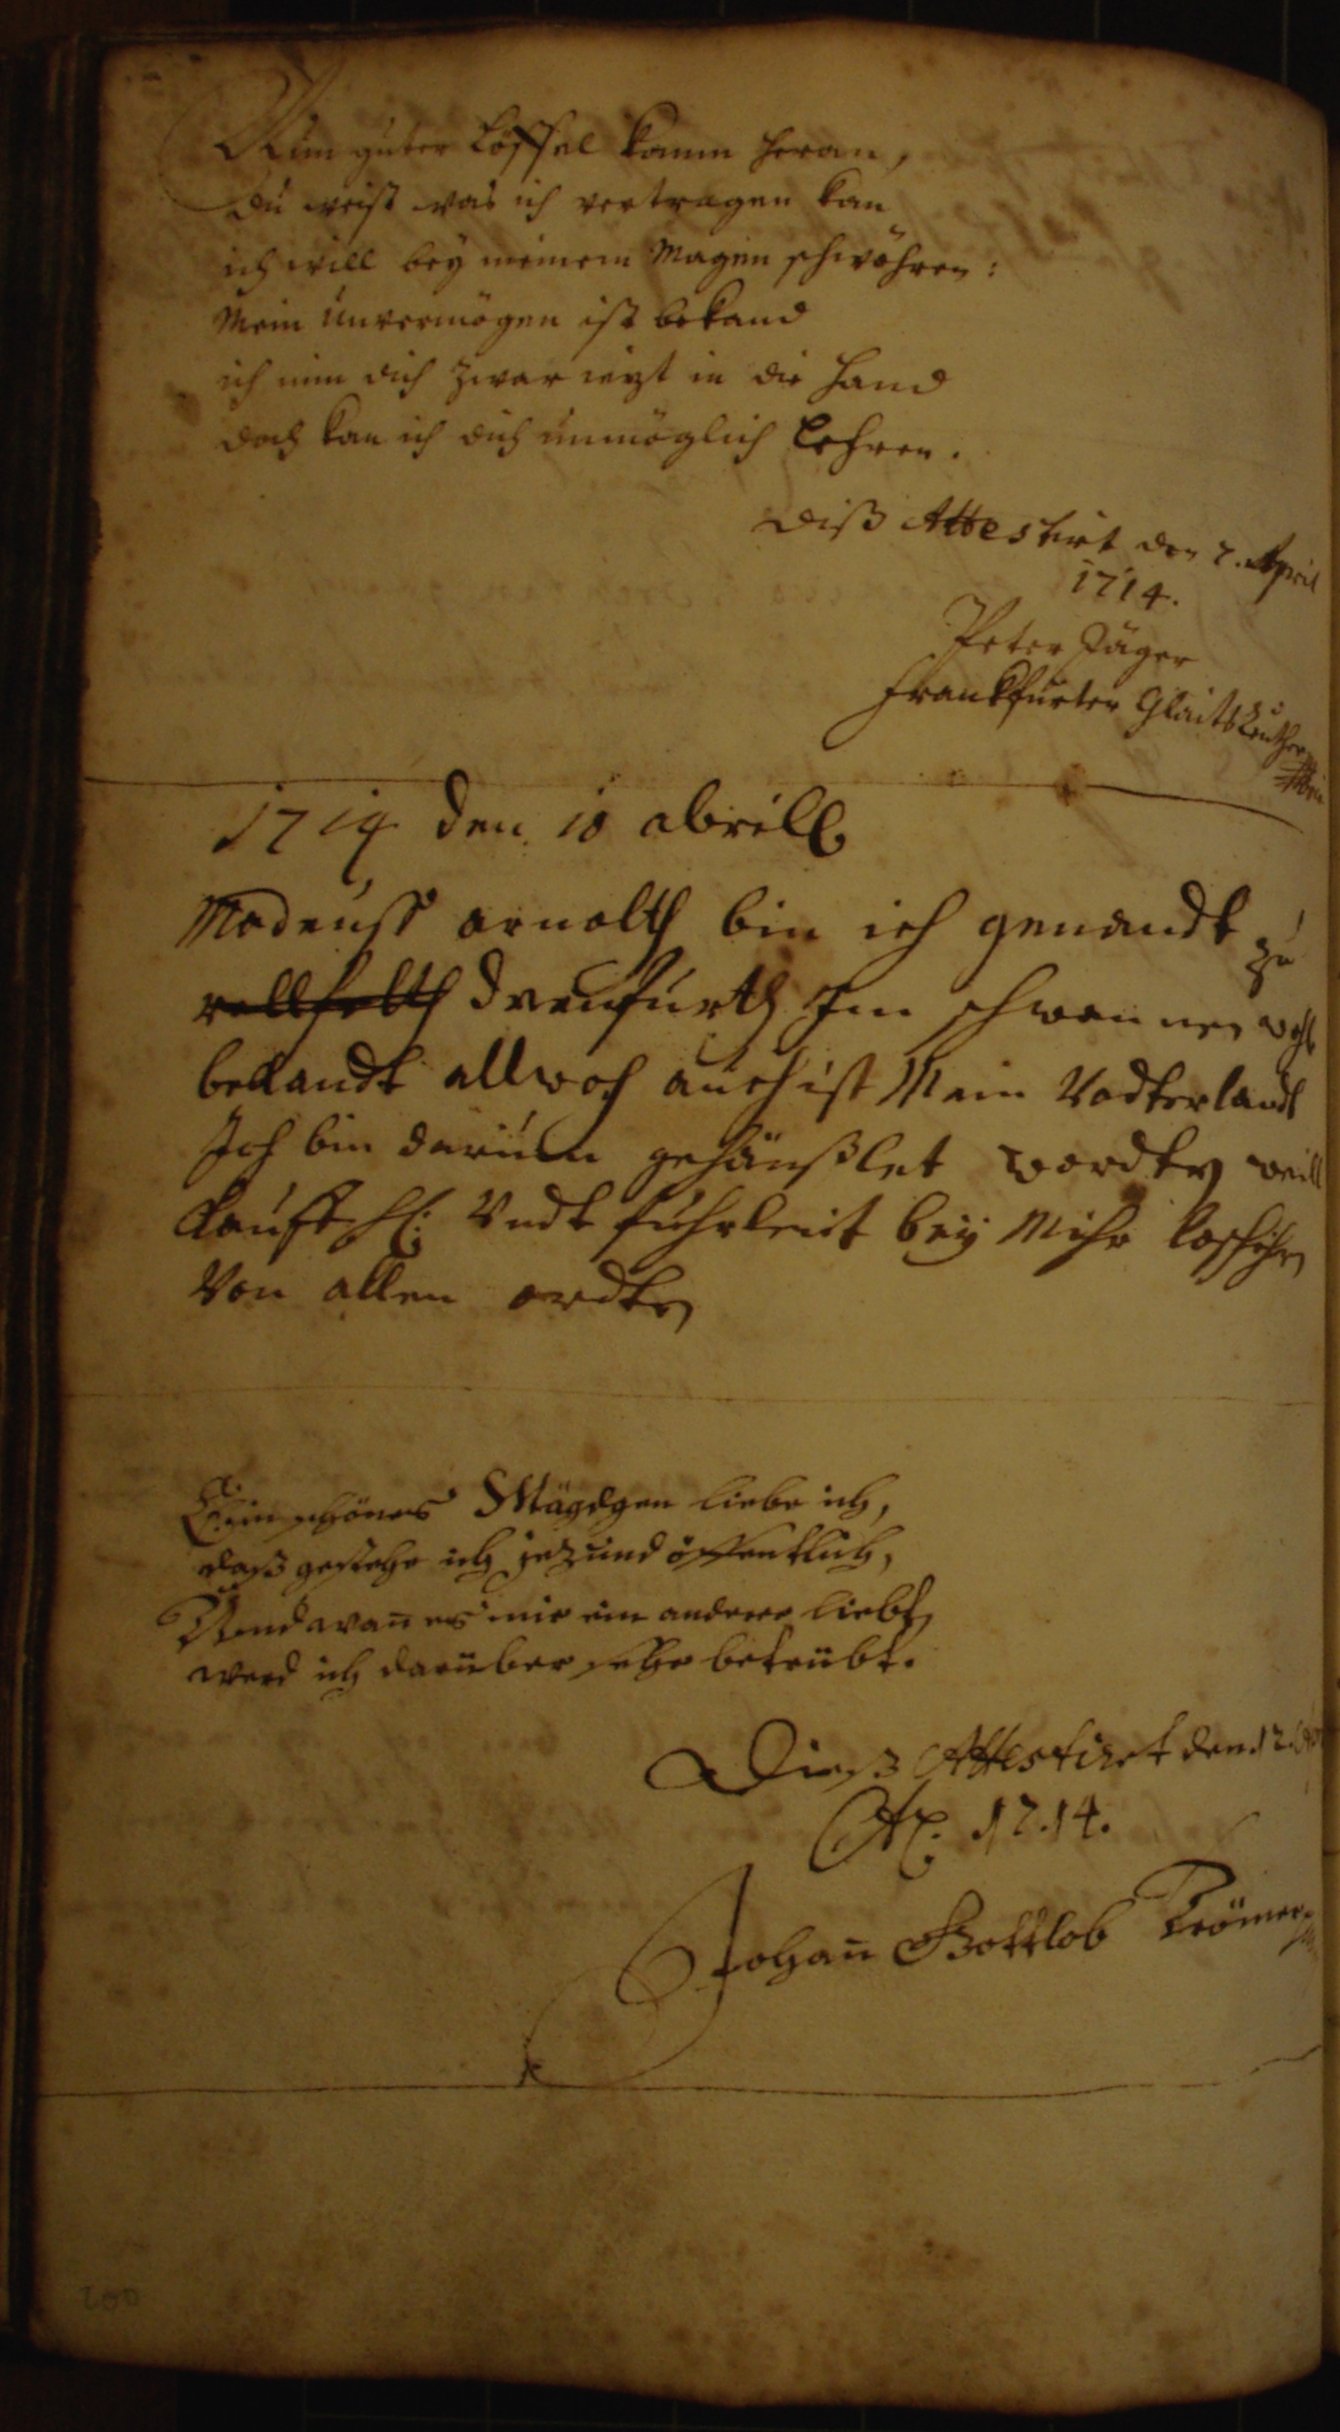 Nun guter Löffel komm heran,
Du weist was ich vertragen kan
ich will bey meinem Magen schwöhren:
Mein unvermögen ist bekand
ich nim dich zwar iezt in die Hand
doch kan ich dich unmöglich Lehren.
diß Attestirt den 7. April
1714.
Peter Jäger
Frankfurter Glaits
1714 den 10 abrill
Madeuß arnolth bin ich genandt zu
Im schwannen
bekandt allwoh auch ist Mein Vadterlandt
Ich bin darum gehänßlet wordten weill
Kauff H: Vndt fuhrleit bey Mihr
Von allen ordten
Ein schönes Mägdgen liebe ich,
daß gestehe ich jezund öffentlich,
Und wan es mir ein anderer liebt,
werd ich darüber sehr betrübt.
Dieß Attestiret den 12.
1714.
Johan Gottlob Crömer
200